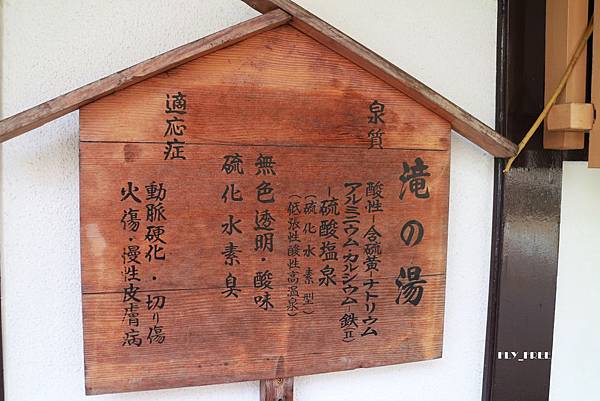 滝の湯
泉質
酸性-含硫黄-ナトリウム
アルミニウム・カルシウム・鉄Ⅱ
-硫酸塩泉
（硫化水素型）
（低張性酸性高温泉）
無色透明・酸味
硫化水素臭
適応症
動脈硬化・切り傷
火傷・慢性皮膚病
FLY_FREE